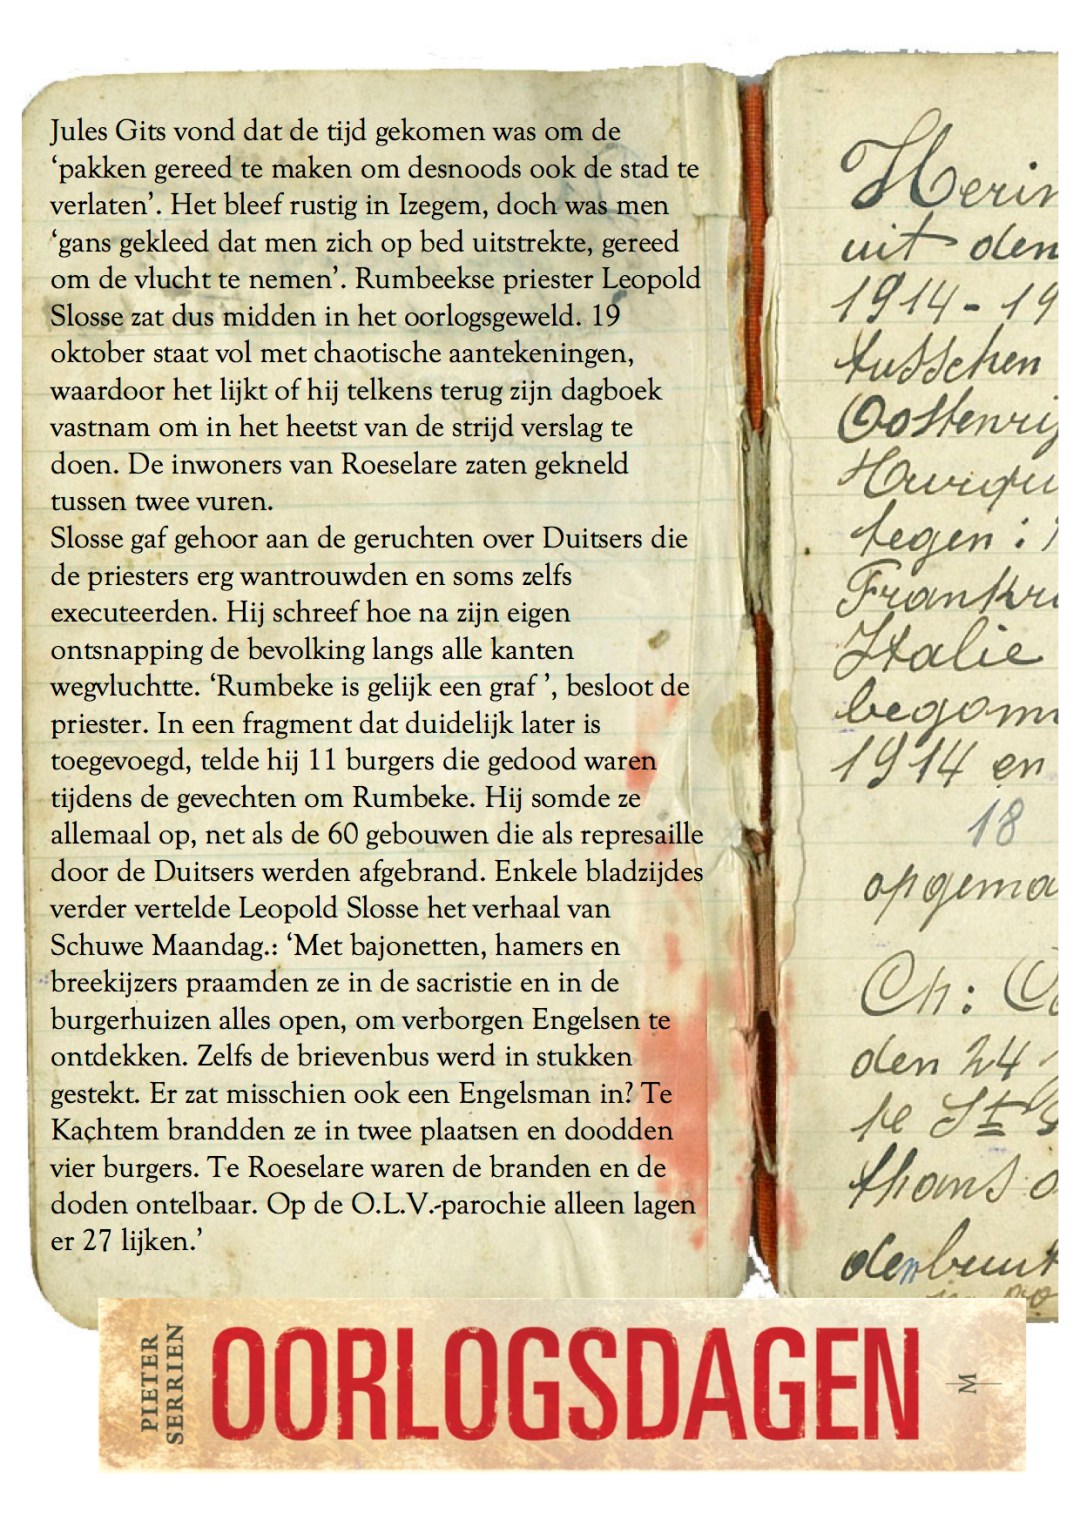 Jules Gits vond dat de tijd gekomen was om de
‘pakken gereed te maken om desnoods ook de stad te
verlaten’. Het bleef rustig in Izegem, doch was men
‘gans gekleed dat men zich op bed uitstrekte, gereed
om de vlucht te nemen’. Rumbeekse priester Leopold
Slosse zat dus midden in het oorlogsgeweld. 19
oktober staat vol met chaotische aantekeningen,
waardoor het lijkt of hij telkens terug zijn dagboek
vastnam om in het heetst van de strijd verslag te
doen. De inwoners van Roeselare zaten gekneld
tussen twee vuren.
Slosse gaf gehoor aan de geruchten over Duitsers die
de priesters erg wantrouwden en soms zelfs
executeerden. Hij schreef hoe na zijn eigen
ontsnapping de bevolking langs alle kanten
wegvluchtte. ‘Rumbeke is gelijk een graf ’, besloot de
priester. In een fragment dat duidelijk later is
toegevoegd, telde hij 11 burgers die gedood waren
tijdens de gevechten om Rumbeke. Hij somde ze
allemaal op, net als de 60 gebouwen die als represaille
door de Duitsers werden afgebrand. Enkele bladzijdes
verder vertelde Leopold Slosse het verhaal van
Schuwe Maandag.: ‘Met bajonetten, hamers en
breekijzers praamden ze in de sacristie en in de
burgerhuizen alles open, om verborgen Engelsen te
ontdekken. Zelfs de brievenbus werd in stukken
gestekt. Er zat misschien ook een Engelsman in? Te
Kachtem brandden ze in twee plaatsen en doodden
vier burgers. Te Roeselare waren de branden en de
doden ontelbaar. Op de O.L.V.-parochie alleen lagen
er 27 lijken.’
Herin
uit den
1914-19
tusschen
Oostenrij
tegen :
Frankr
Italie
begonn
1914 en
18
opgema
Ch:
den 24
te St
thans
PIETER
SERRIEN
OORLOGSDAGEN
M